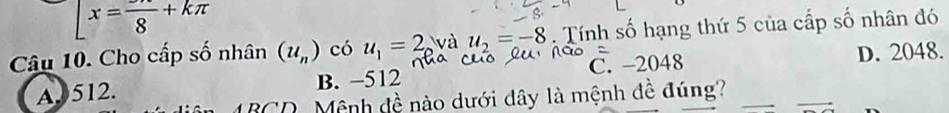 x = π/8 + kπ
-8
Câu 10. Cho cấp số nhân (uₙ) có u₁ = 2 và u₂ = -8. Tính số hạng thứ 5 của cấp số nhân đó
A. 512. B. -512 C. -2048 D. 2048.
ABCD. Mệnh đề nào dưới đây là mệnh đề đúng?